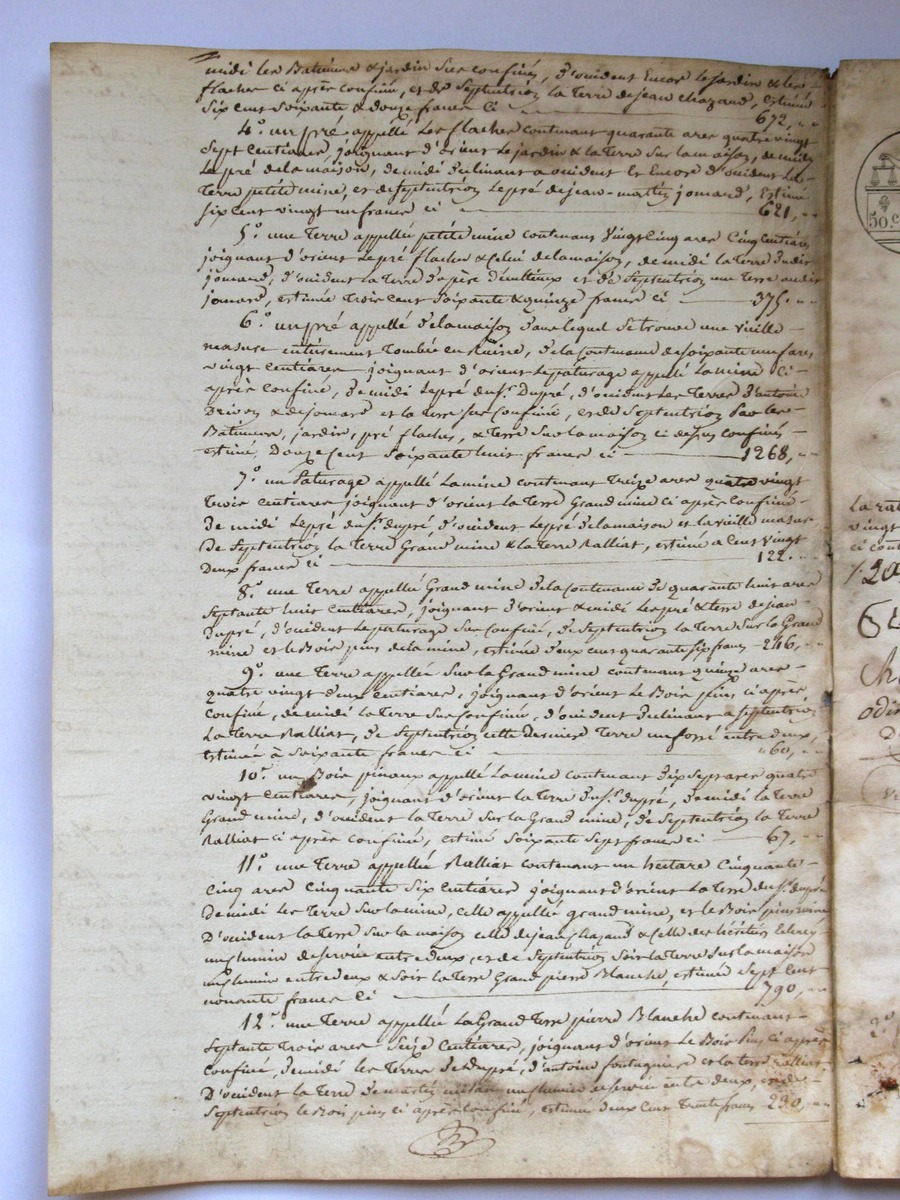 midi les Batimens & jardin sus confinés, d'occident Encore le jardin & les
flaches ci après confiné, et de Septentrion la Terre de jean chazaud, estimé
Six cent soixante & douze francs ci 672,
4.° un pré appellé Les flaches contenant quarante ares quatre vingt
Sept Centiares, joignant d'orient Le jardin & la Terre Sur la maison, de midi
Le pré de la maison, de midi declinant a occident et Encore d'occident La
Terre petite mine, et de Septentrion Le pré de jean-martin jomard, Estimé
Six cent vingt un francs ci 621,
5.° une Terre appellée petite mine contenant Vingt Cinq ares Cinq Centiares
joignant d'orient Le pré flaches & Celui de la maison, de midi la Terre dudit
jomard, d'occident la Terre et de Septentrion une Terre audit
jomard, estimée Trois Cent Soixante & quinze francs ci 375.
6.° un pré appellé de la maison dans lequel Se trouve une vieille
masure entièrement Tombée en Ruine, de la Contenance de Soixante un ares
vingt centiares joignant d'orient Le paturage appellé La mine Ci
après Confiné, de midi Le pré du S.r Dupré, d'occident Les Terres d'antoine
Drivon & de jomard et la Terre sus Confinée, et de Septentrion Par les
Batimens, jardin, pré flaches, & Terre Sur la maison ci dessus confinés
estimé, Douze Cent Soixante huit francs ci 1268,
7.° un Paturage appellé La mine contenant Treize ares quatre vingt
Trois Centiares joignant d'orient la Terre Grand mine ci après Confinée
de midi Le pré du S.r dupré d'occident Le pré de la maison et la vieille masure,
De Septentrion la Terre Grand mine & la Terre Ralliat, estimé a Cent Vingt
Deux francs ci 122.
8.° une Terre appellée Grand mine de la Contenance de quarante huit ares
Septante huit Centiares, joignant d'orient & midi Les pré & terre de jean
Dupré, d'occident Le paturage Sus Confiné, de Septentrion la Terre Sur la Grand
mine et le Bois pins de la mine, estimée deux cens quarante six francs 246,
9.° une Terre appellée Sur la Grand mine contenant quinze ares
quatre vingt deux Centiares, joignant d'orient Le Bois pins ci après
Confiné, de midi la Terre Sus Confinée, d'occident declinant a Septentrion
La Terre Ralliat, de Septentrion cette Derniere Terre un fossé entre deux,
Estimée à Soixante francs ci 60,
10.° un Bois pineaux appellé La mine contenant Dix Sept ares quatre
vingt Centiares, joignant d'orient la Terre du S.r dupré, de midi la Terre
Grand mine, d'occident la Terre Sur la Grand mine, de Septentrion la Terre
Ralliat ci après Confinée, estimé Soixante Sept francs ci 67,
11.° une Terre appellée Ralliat contenant un hectare Cinquante
Cinq ares Cinquante Six Centiares joignant d'orient La Terre du S.r dupré
De midi Les Terre Sur la mine, celle appellée grand mine, et le Bois pins
D'occident la Terre Sur la maison celle de jean Chazaud & Celle des héritiers
un chemin de Service entre deux, et de Septentrion Soir la Terre Sur la maison
un chemin entre deux & Soir la Terre Grand pierre Blanche, estimée Sept Cent
nonante francs Ci 790,
12.° une Terre appellée La Grand Terre pierre Blanche contenant
Septante Trois ares Seize Centiares, joignant d'orient Le Bois Pins ci après
Confiné, de midi les Terres de Dupré, d'antoine et la terre Ralliat,
D'occident la Terre de un chemin de Service entre deux, et de
Septentrion Le Bois pins ci après Confiné, estimée deux Cent Trente francs 230,
50.c
La
vingt
ci